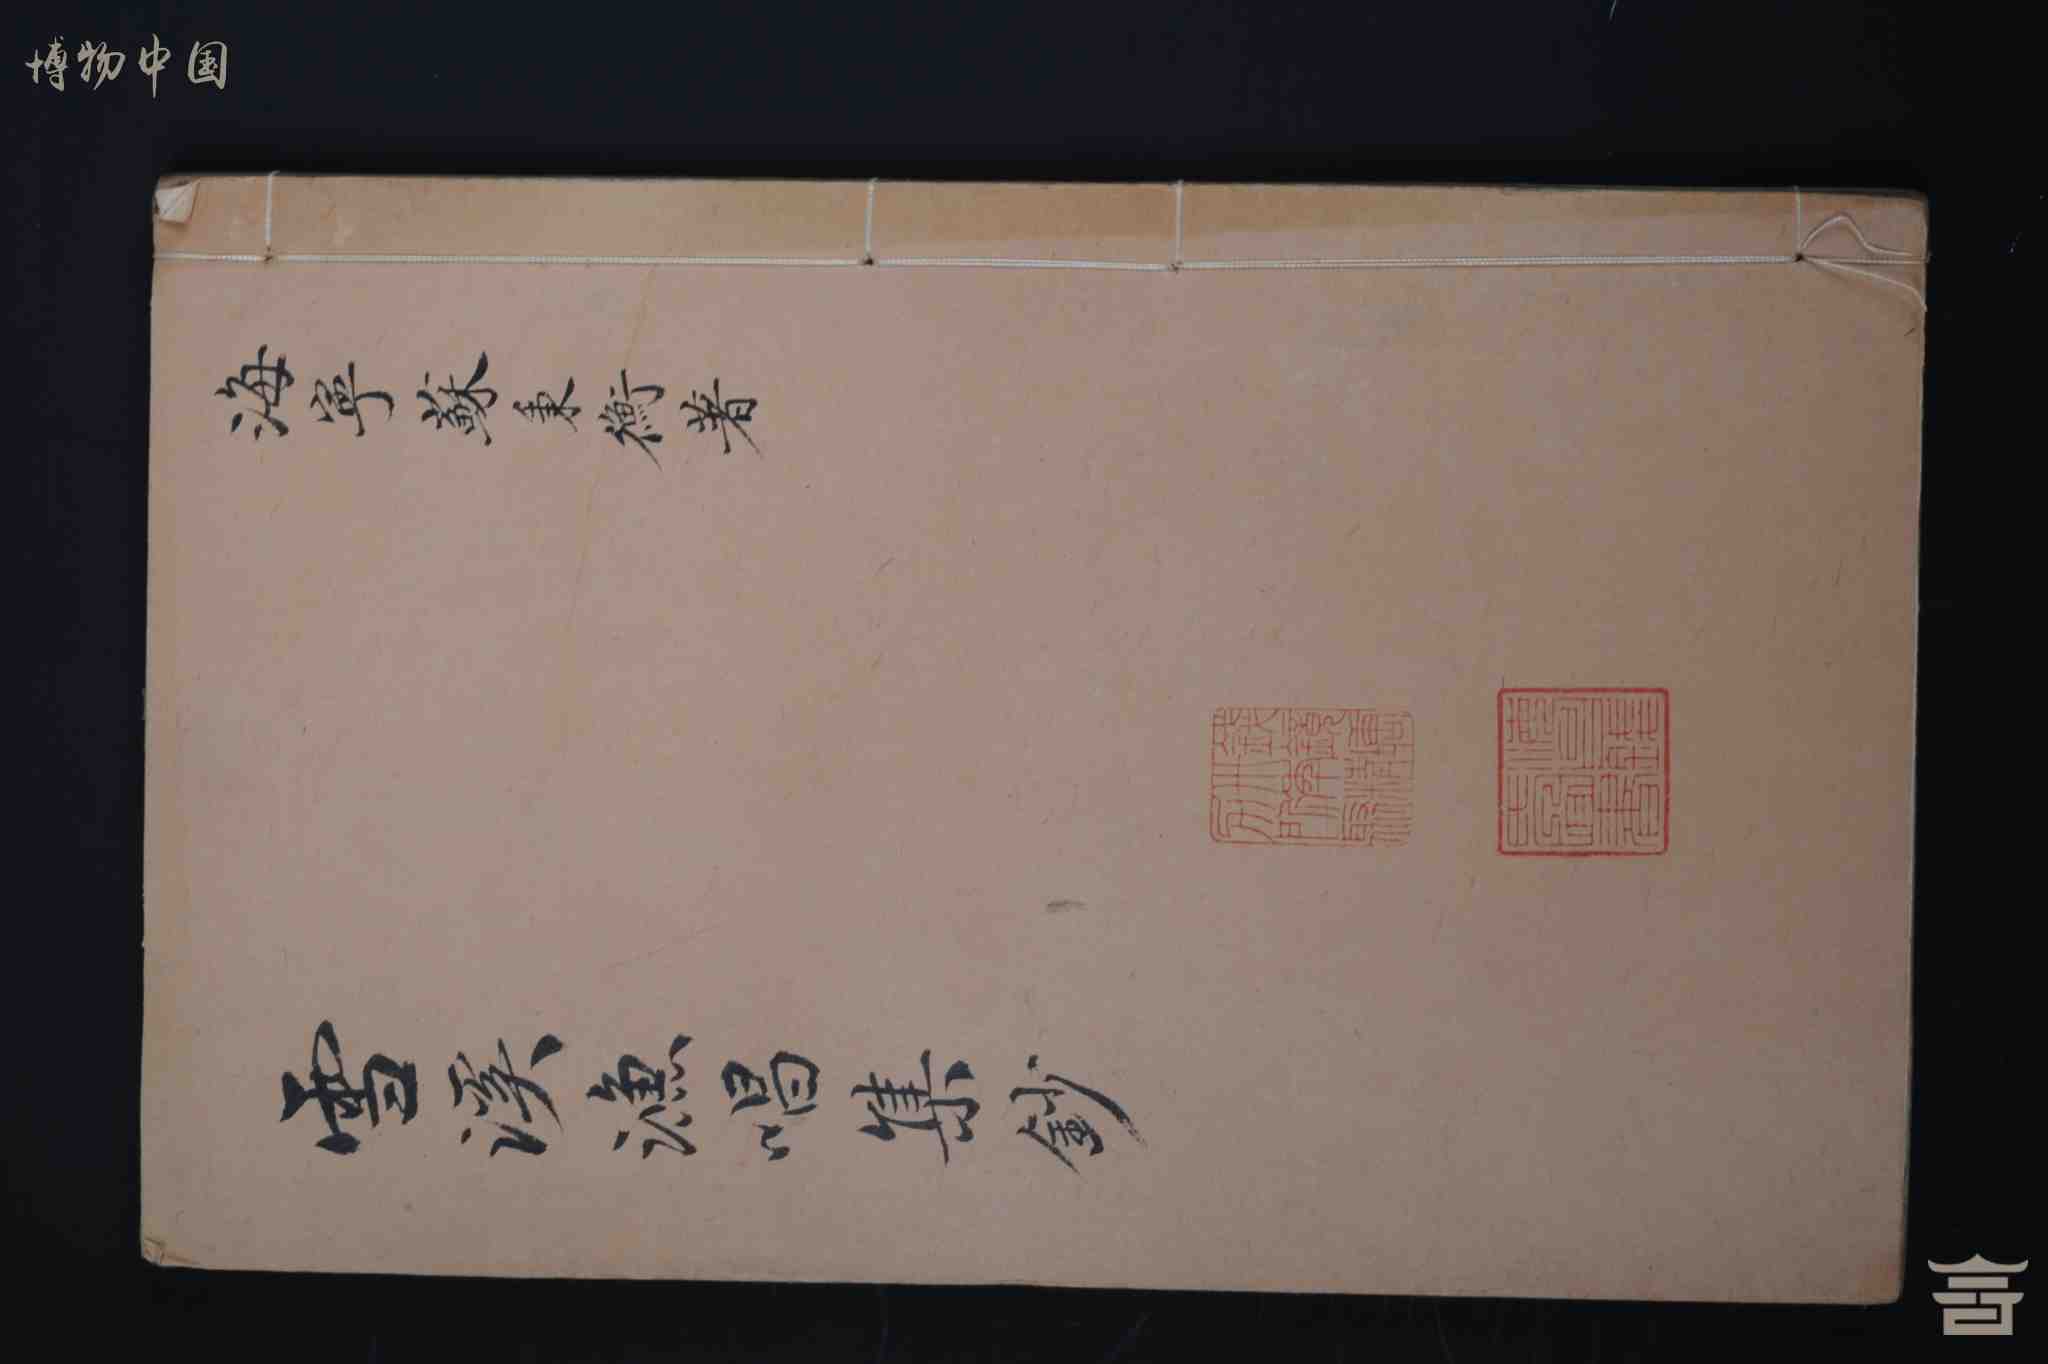 博物中国
海寧蘇秉衡著
霅溪漁唱集鈔